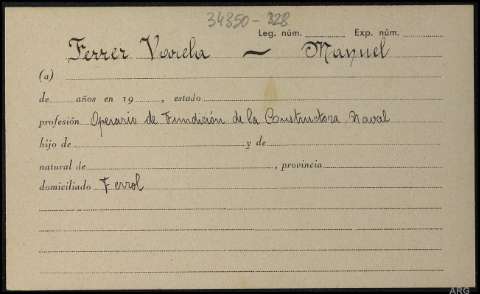 34850-328
Leg. núm. Exp. núm.
Ferrer Varela — Manuel
(a)
de años en 19 , estado
profesión Operario de Fundición de la Constructora Naval
hijo de y de
natural de , provincia
domiciliado Ferrol
ARG